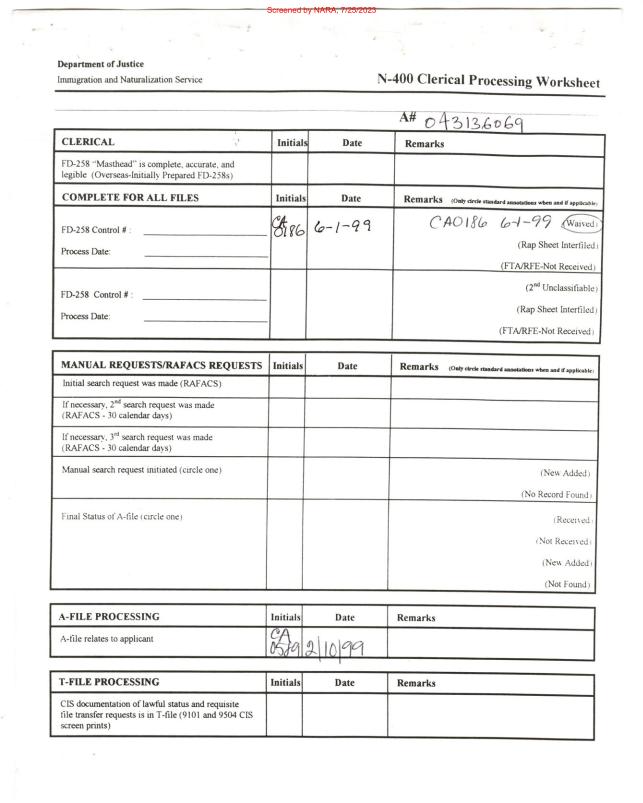 Screened by NARA, 7/25/2023
Department of Justice
Immigration and Naturalization Service
N-400 Clerical Processing Worksheet
A# 043136069
CLERICAL Initials Date Remarks
FD-258 "Masthead" is complete, accurate, and
legible (Overseas-Initially Prepared FD-258s)
COMPLETE FOR ALL FILES Initials Date Remarks (Only circle standard annotations when and if applicable)
FD-258 Control # : CA 0186 6-1-99 CA0186 6-1-99 (Waived)
(Rap Sheet Interfiled)
Process Date:
(FTA/RFE-Not Received)
(2nd Unclassifiable)
FD-258 Control # :
(Rap Sheet Interfiled)
Process Date:
(FTA/RFE-Not Received)
MANUAL REQUESTS/RAFACS REQUESTS Initials Date Remarks (Only circle standard annotations when and if applicable)
Initial search request was made (RAFACS)
If necessary, 2nd search request was made
(RAFACS - 30 calendar days)
If necessary, 3rd search request was made
(RAFACS - 30 calendar days)
Manual search request initiated (circle one) (New Added)
(No Record Found)
Final Status of A-file (circle one) (Received)
(Not Received)
(New Added)
(Not Found)
A-FILE PROCESSING Initials Date Remarks
A-file relates to applicant CA 0589 2/10/99
T-FILE PROCESSING Initials Date Remarks
CIS documentation of lawful status and requisite
file transfer requests is in T-file (9101 and 9504 CIS
screen prints)